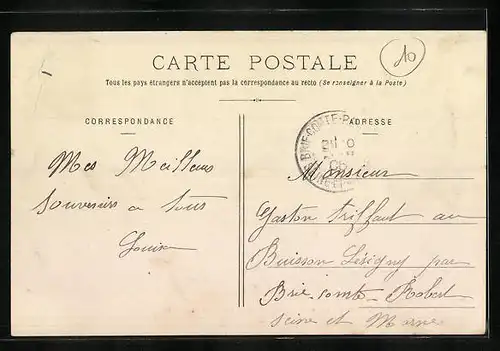 10
CARTE POSTALE
Tous les pays étrangers n'acceptent pas la correspondance au recto (Se renseigner à la Poste)
CORRESPONDANCE
ADRESSE
Mes Meilleurs
Souvenirs a tous
Louise
BRIE-COMTE-
Monsieur
Gaston au
Buisson Lésigny par
Brie-comte-Robert
Seine et Marne